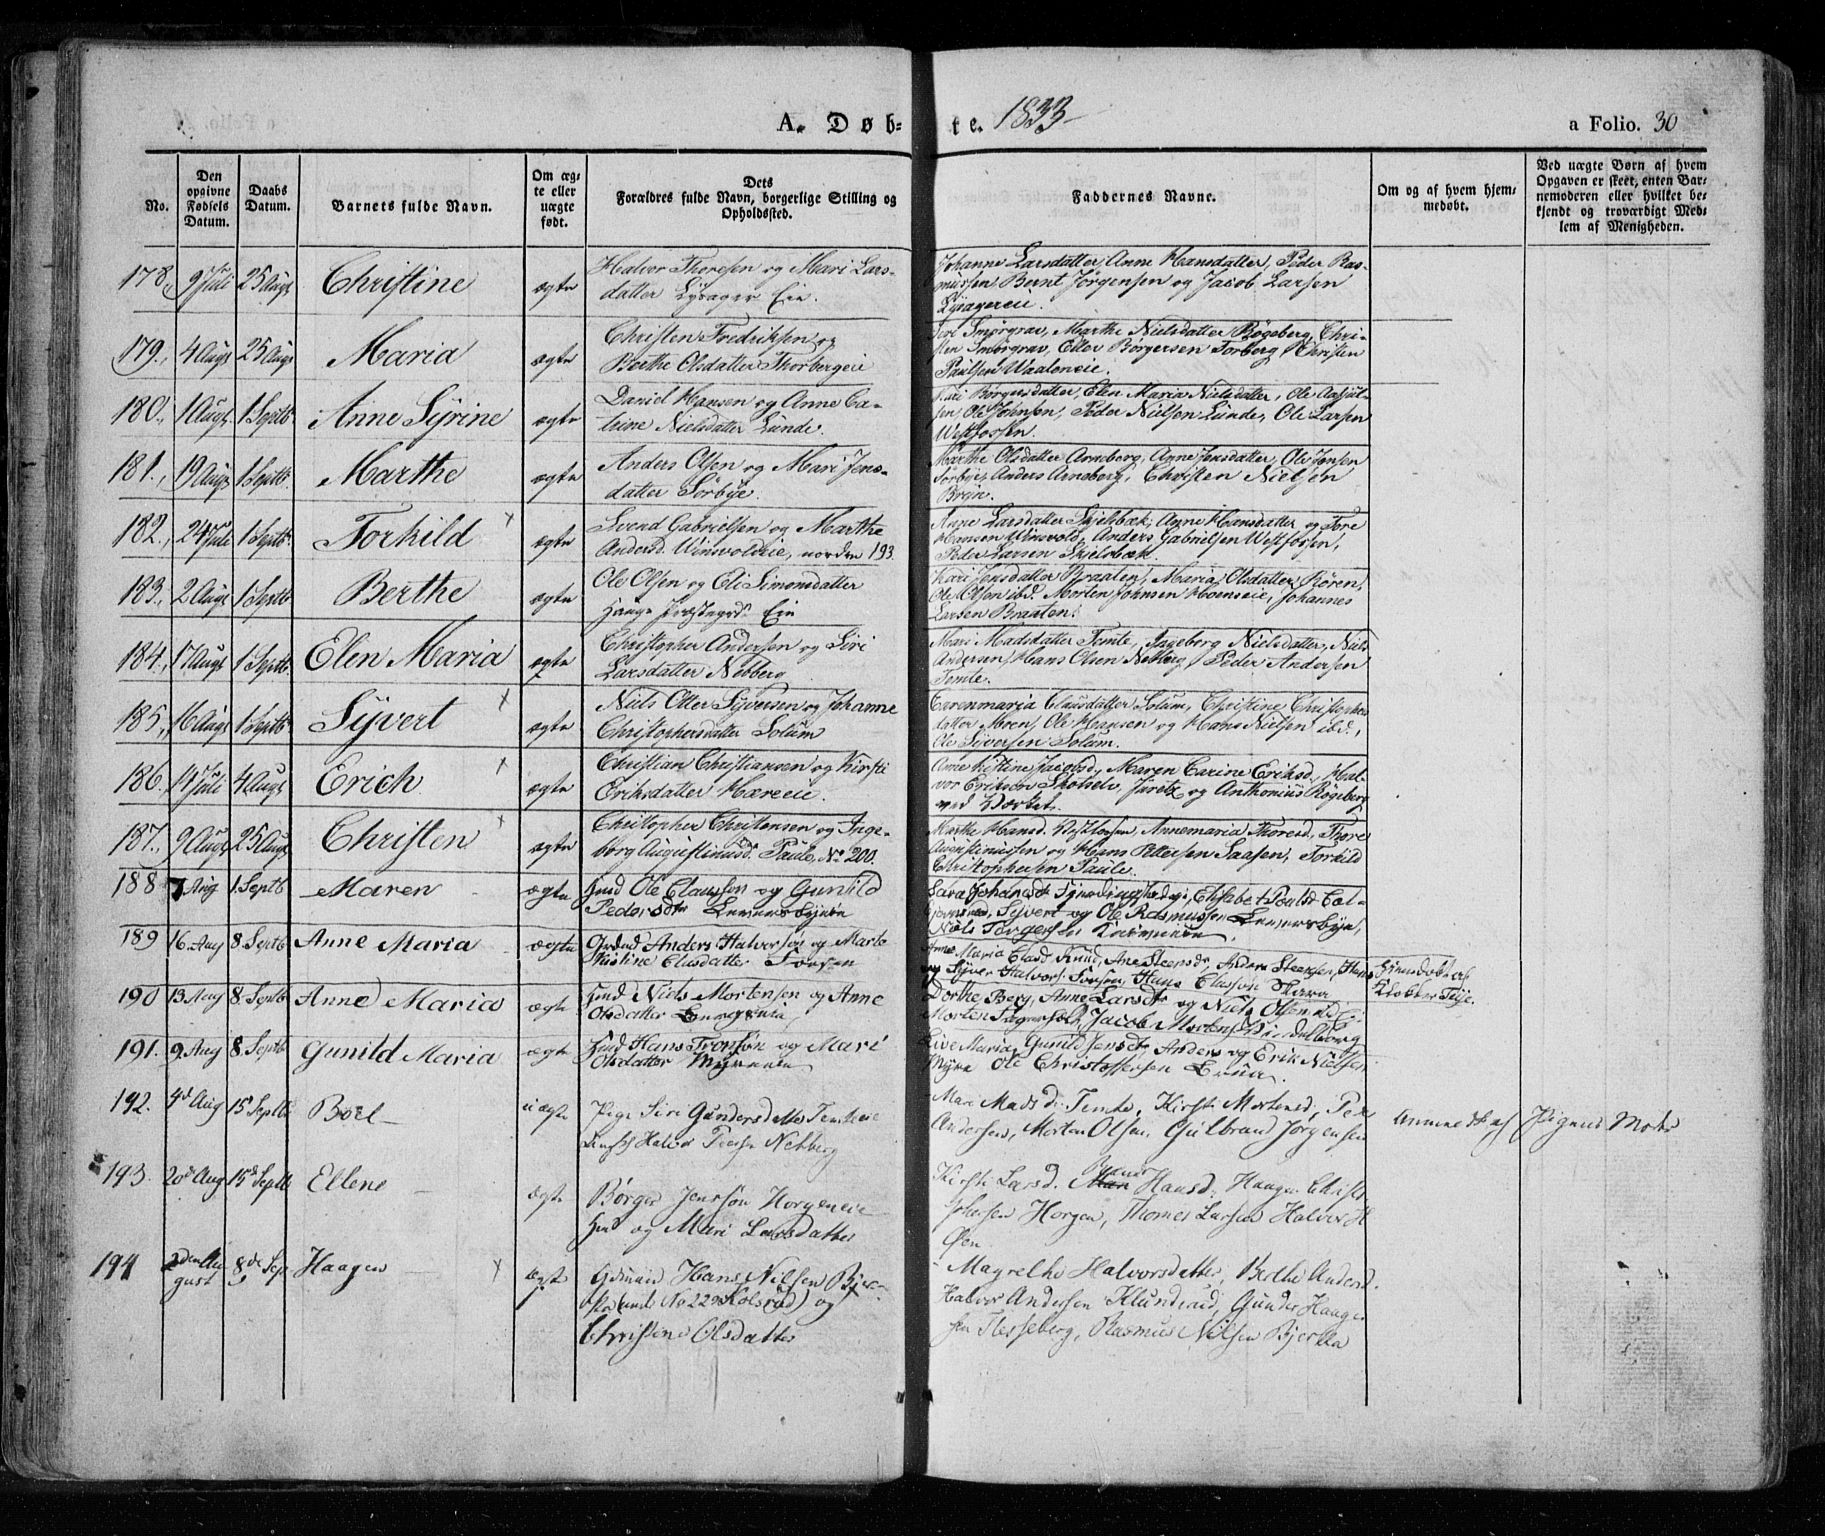 A. Døb- te. 1833
a Folio. 30
No.
Den opgivne Fødsels Datum.
Daabs Datum.
Barnets fulde Navn.
Om ægte eller uægte født.
Dets Forældres fulde Navn, borgerlige Stilling og Opholdssted.
Faddernes Navne.
Om og af hvem hjemmedøbt.
Ved uægte Børn af hvem Opgaven er skeet, enten Barnemoderen eller hvilket bekjendt og troværdigt Medlem af Menigheden.
178., 9 Juli 25 Augt Christine ægte
Halvor Thoresen og Mari Lars-
datter Lysager Eie.
Johanne Larsdatter, Anne Hansdatter, Peder Ras-
mussen Bernt Jørgensen og Jacob Larsen
179., 4 Augt 25 Augt Maria ægte
Christen Fredriksen og
Berthe Olsdatter Thorbergeie
Siri Smørgrav, Marthe Nielsdatter Bøgeberg, Chri-
sten Smørgrav, Børgersen Torberg, Christen
Paulsen
180., 1 Augt 1 Septb Anne Syrine ægte
Daniel Hansen og Anne Ca-
trine Nielsdatter Lunde.
Kari Børgersdatter, Elen Maria Nielsdatter, Ole
Ole Johnsen, Peder Nielsen Lunde, Ole Larsen
Westfossen.
181., 19 Augt 1 Septb. Marthe ægte
Anders Olsen og Mari Jens-
datter Sørbye.
Marthe Olsdatter Arneberg, Anne Jensdatter, Ole Jonsen
Sorbye, Anders Arneberg, Christen Nielsen
182., 24 Juli 1 Septb. Torkild x ægte
Svend Gabrielsen og Marthe
Andersd. Winsvoldeie, norden 193
Anne Larsdatter Skjelbæk, Anne Hansdatter og Tore
Hansen Winsvold, Anders Gabrielsen Westfossen,
Peder Larsen
183., 2 Augt 1 Septb Berthe ægte
Ole Olsen og Eli Simonsdatter
Hougs Præstegrds Eie
Kari Jensdatter Braaten, Maria Olsdatter Røren,
Ole Olsen ibd. Morten Johnsen Johannes
Larsen Braaten.
184., 17 Augt 1 Septb. Elen Maria ægte
Christopher Andersen og Siri
Larsdatter Nebberg
Mari Madsdatter Temte, Ingeborg Nielsdatter, Niels
Andersen, Hans Olsen Nebberg, Peder Andersen
Temte.
185., 16 Augt 1 Septb Syvert x ægte
Niels Otter Syversen og Johanne
Christophersdatter Solum
Carenmaria Clausdatter Solum, Christine Christophers
datter Moren, Ole Hansen og Hans Nielsen ibd.,
Ole Syversen Solum.
186. 14 Juli 4 Augt Erich x ægte
Christian Christiansen og Kirsti
Eriksdatter Hæreeie.
Anne Kistine Jacobsd., Maren Carine Eriksd., Hal-
vor Eriksen Skotselv, og Anthonius Bøgeberg
ved Værket.
187., 9 Augt 25 Augt Christen x ægte
Christopher Christensen og Inge-
borg Augustinusd. Paule, No 200.
Marthe Hansd. Vestfossen, Annemaria Thoresd., Thore
Augustinussen og Hans Pettersen Saasen, Torkild
Christophersen Paule.
188 7 Aug 1. Septb Maren ægte
Husd Ole Claussen og Gunild
Pedersdtr
Sara Johansdtr Elisabet Poulsd
Syvert og Ole Rasmussen
Niels
189 16 Aug 8 Septb Anne Maria ægte
Anders Halvorsen og Marte
Kistine Clasdatter Fossen
Anne Maria Clasd Ane Steensdr, Anders Steensen, Hans
og Syver Halvors. Fossen, Hans Classon
Hjemdøbt af
190 13 Aug 8 Septb Anne Maria ægte
Husd Niels Mortensen og Anne
Olsdatter
Dorthe Berg, Anne Larsdtr og Niels Olsen
Morten Jacob Mortensen
191. 9 Aug 8 Septb Gunild Maria ægte
Husd Hans Tronsøn og Mari
Olsdatter
Live Maria, Gunild Jensdtr, Anders og Erik Nielsen
Ole Christoffersen
192. 4d Aug 15 Septb Boel uægte
Pige Siri Gundersdatter Temteeie
Halvor Nebberg
Mari Madsd. Temte, Kirsti Mortensd, Peder
Andersen, Morten Olsen, Gulbrand Jørgensen
Anmeldt af Pigens Moder
193. 20d Aug 15d Septb Ellene ægte
Børger Jenssøn Horgeneie
og Mari Larsdatter
Kirsti Larsd. Hansd. Haagen Christo
Horgen, Thomes Larsen Halvor
194 2den August 8de Sep Haagen x ægte
Hans Nilsen
No 229 Kolsrud) og
Christine Olsdatter
Magrethe Halvorsdatter, Berthe Andersd.
Halvor Andersen Gunder Haagen
sen Flesseberg, Rasmus Nilsen Bjerkla